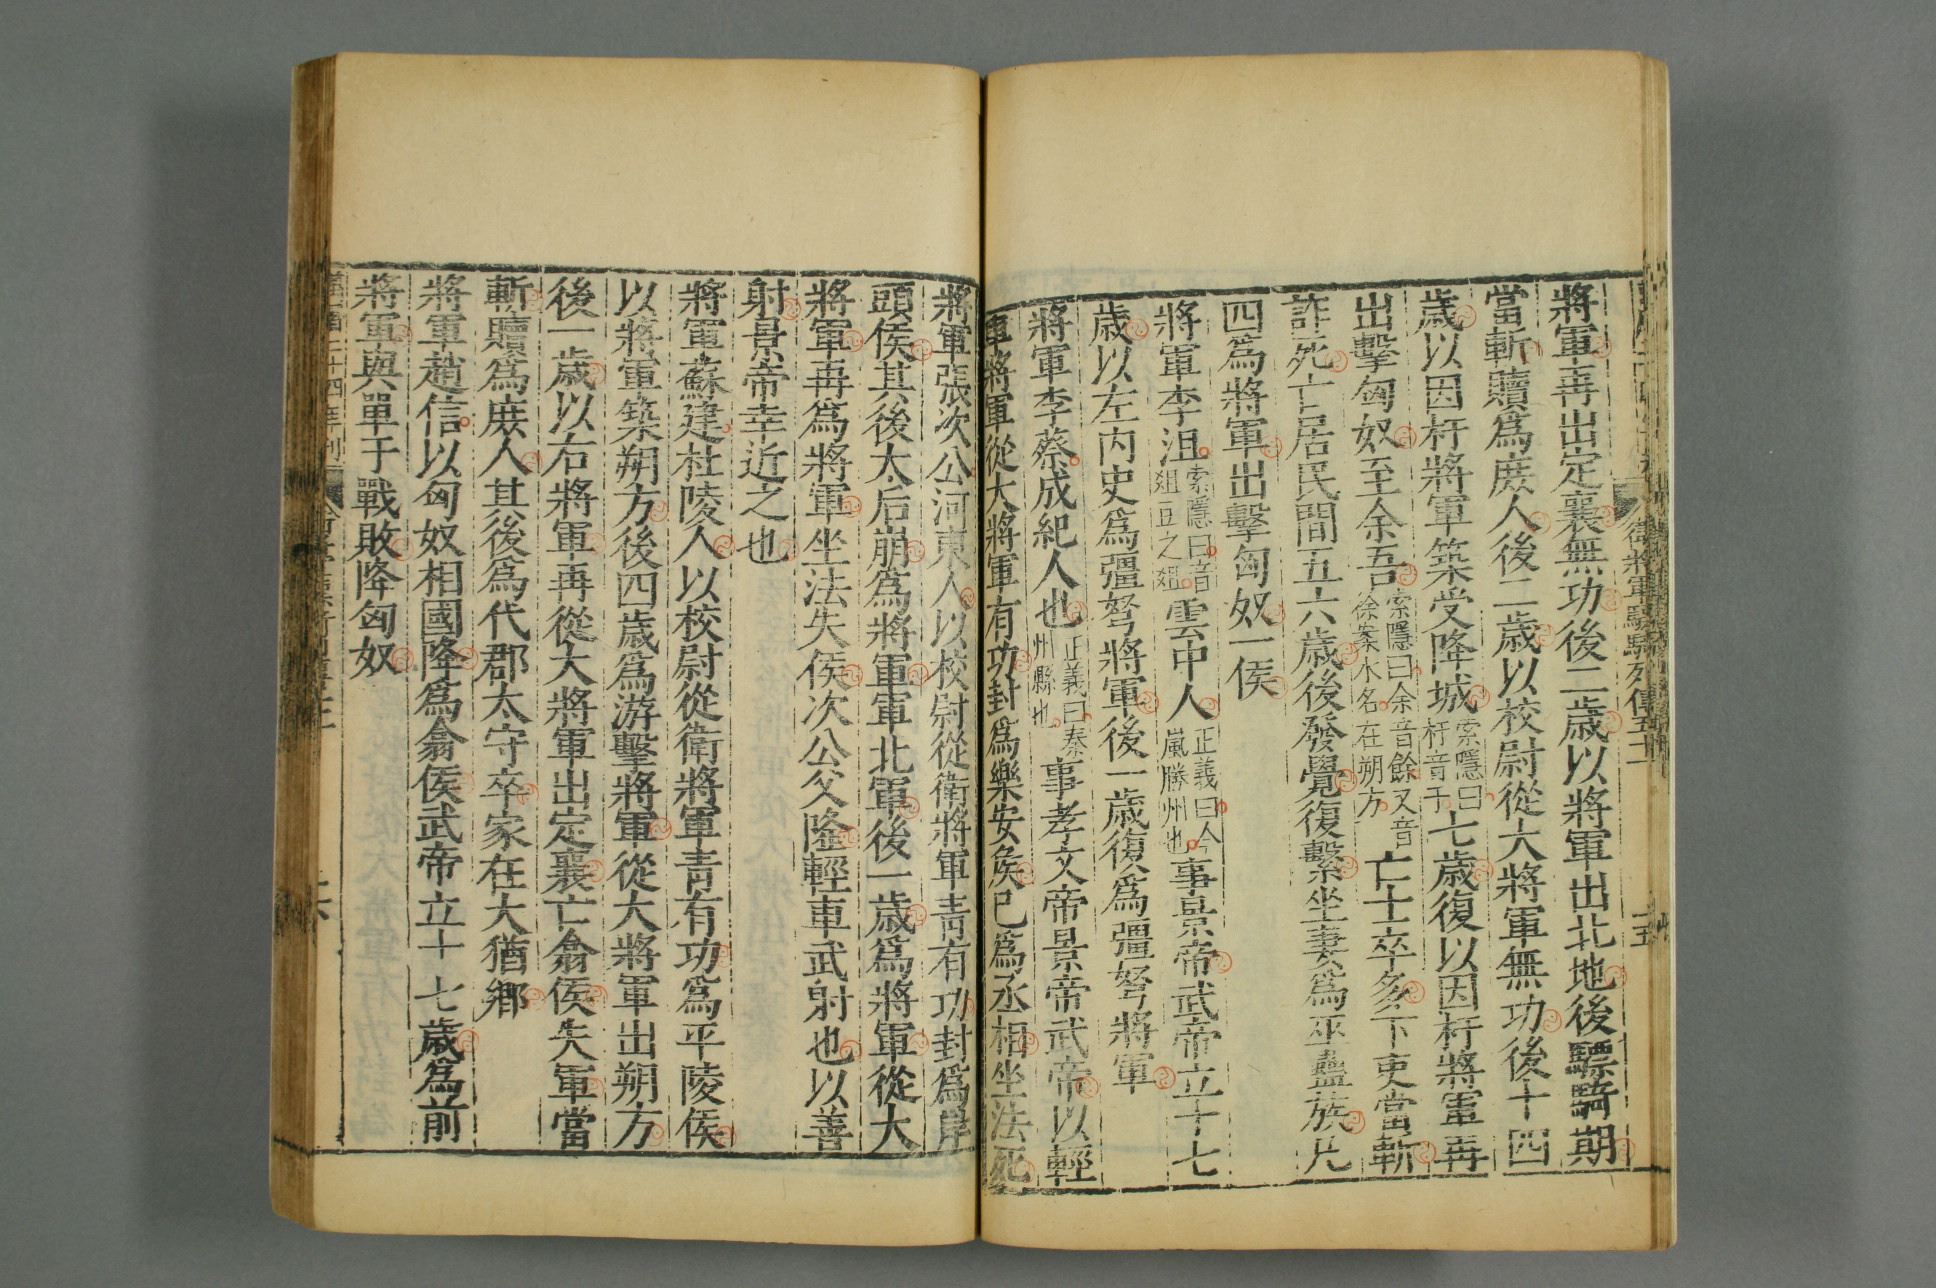 衛將軍驃騎列傳五十一
二五
將軍再出定襄無功後二歲以將軍出北地後驃騎期
當斬贖為庶人後二歲以校尉從大將軍無功後十四
歲以因杅將軍築受降城索隱曰杅音于七歲復以因杅將軍再
出擊匈奴至余吾索隱曰余音餘又音徐案水名在朔方亡士卒多下吏當斬
詐死亡居民間五六歲後發覺復繫坐妻為巫蠱族凡
四為將軍出擊匈奴一侯
將軍李沮索隱曰音俎豆之俎雲中人正義曰今嵐勝州也事景帝武帝立十七
歲以左內史為彊弩將軍後一歲復為彊弩將軍
將軍李蔡成紀人也正義曰秦州縣也事孝文帝景帝武帝以輕
車將軍從大將軍有功封為樂安侯已為丞相坐法死
將軍張次公河東人以校尉從衛將軍青有功封為岸
頭侯其後太后崩為將軍軍北軍後一歲為將軍從大
將軍再為將軍坐法失侯次公父隆輕車武射也以善
射景帝幸近之也
將軍蘇建杜陵人以校尉從衛將軍青有功為平陵侯
以將軍築朔方後四歲為游擊將軍從大將軍出朔方
後一歲以右將軍再從大將軍出定襄亡翕侯失軍當
斬贖為庶人其後為代郡太守卒家在大猶鄉
將軍趙信以匈奴相國降為翕侯武帝立十七歲為前
將軍與單于戰敗降匈奴